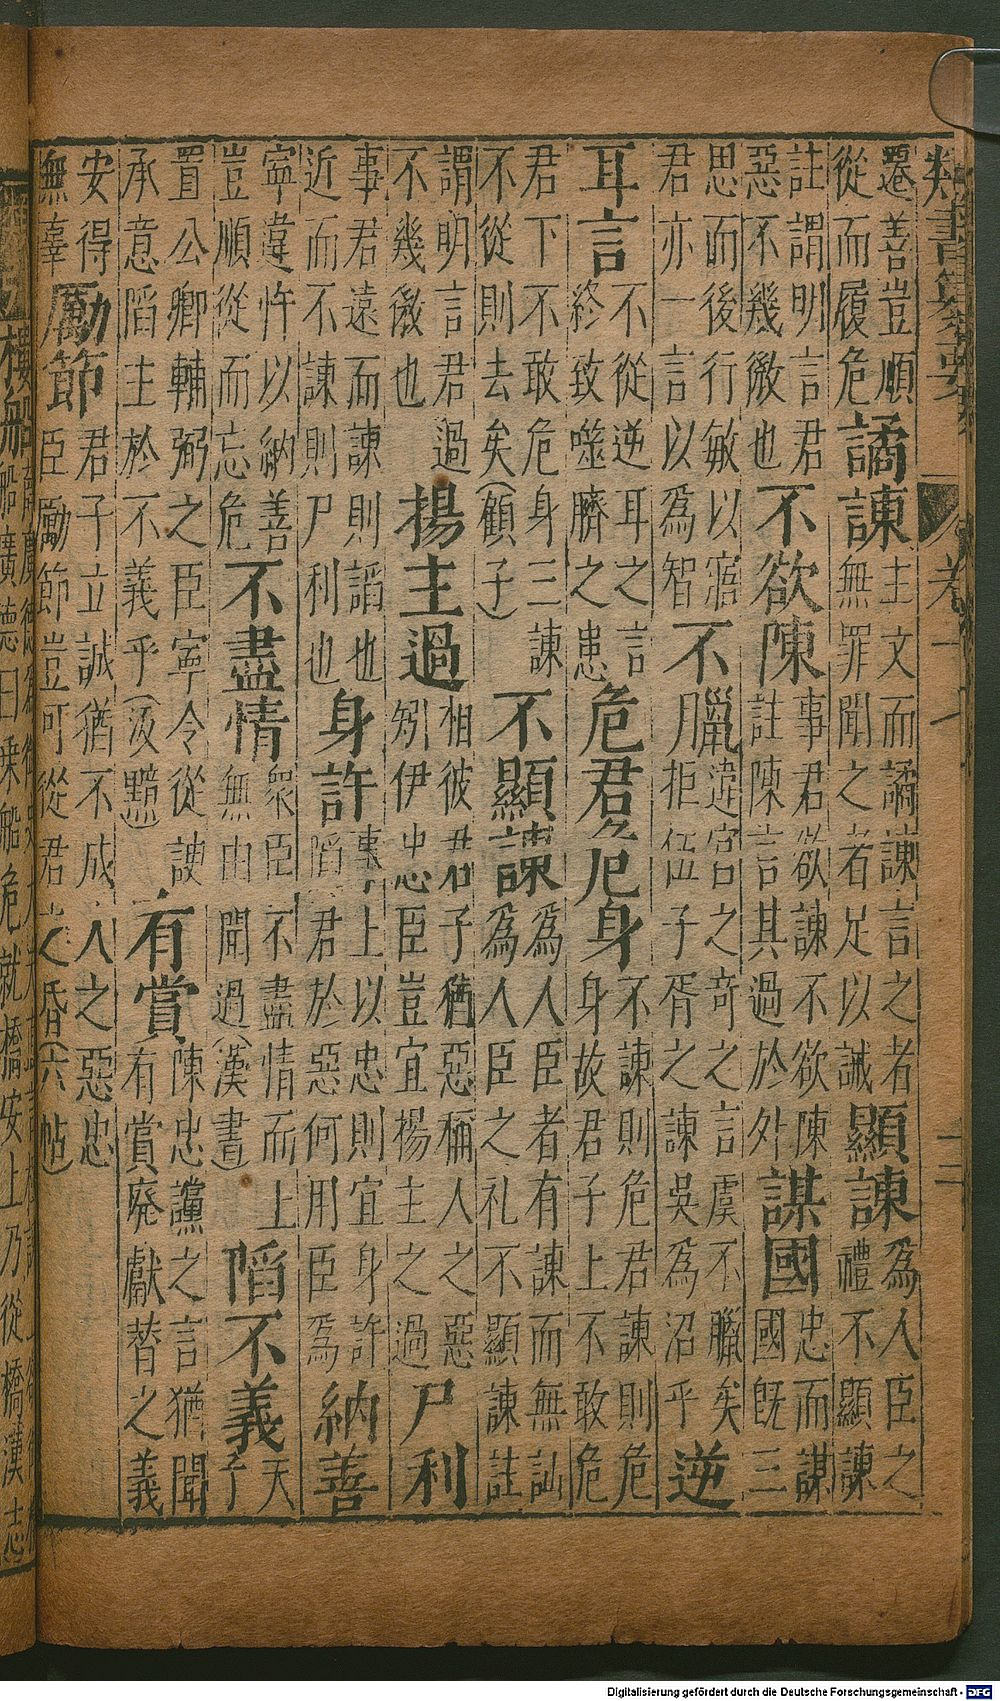 類書纂要
遷善豈順
從而履危
譎諫
主文而譎諫言之者
無罪聞之者足以誡
顯諫
為人臣之
禮不顯諫
註謂明言君
惡不幾微也
不欲陳
事君欲諫不欲陳
註陳言其過於外
謀國
忠而謀
國既三
思而後行敏以寤
君亦一言以為智
不臘
違宮之奇之言虞不臘矣
拒伍子胥之諫吳為沼乎
逆
耳言
不從逆耳之言
終致噬臍之患
危君危身
不諫則危君諫則危
身故君子上不敢危
君下不敢危身三諫
不從則去矣(顧子)
不顯諫
為人臣者有諫而無訕
為人臣之礼不顯諫註
謂明言君過
不幾微也
揚主過
相彼君子猶惡稱人之惡
矧伊忠臣豈宜揚主之過
尸利
事君遠而諫則謟也
近而不諫則尸利也
身許
事上以忠則宜身許
陷君於惡何用臣為
納善
寧違忤以納善
豈順從而忘危
不盡情
衆臣不盡情而上
無由聞過(漢書)
陷不義
天
子
置公卿輔弼之臣寧令從諛
承意陷主於不義乎(汲黯)
有賞
陳忠讜之言猶聞
有賞廢獻替之義
安得
無辜
勵節
君子立誠猶不成人之惡忠
臣勵節豈可從君之昏(六帖)
樓船
船廣德曰乗船危就橋安上乃從橋漢志
Digitalisierung gefördert durch die Deutsche Forschungsgemeinschaft - DFG